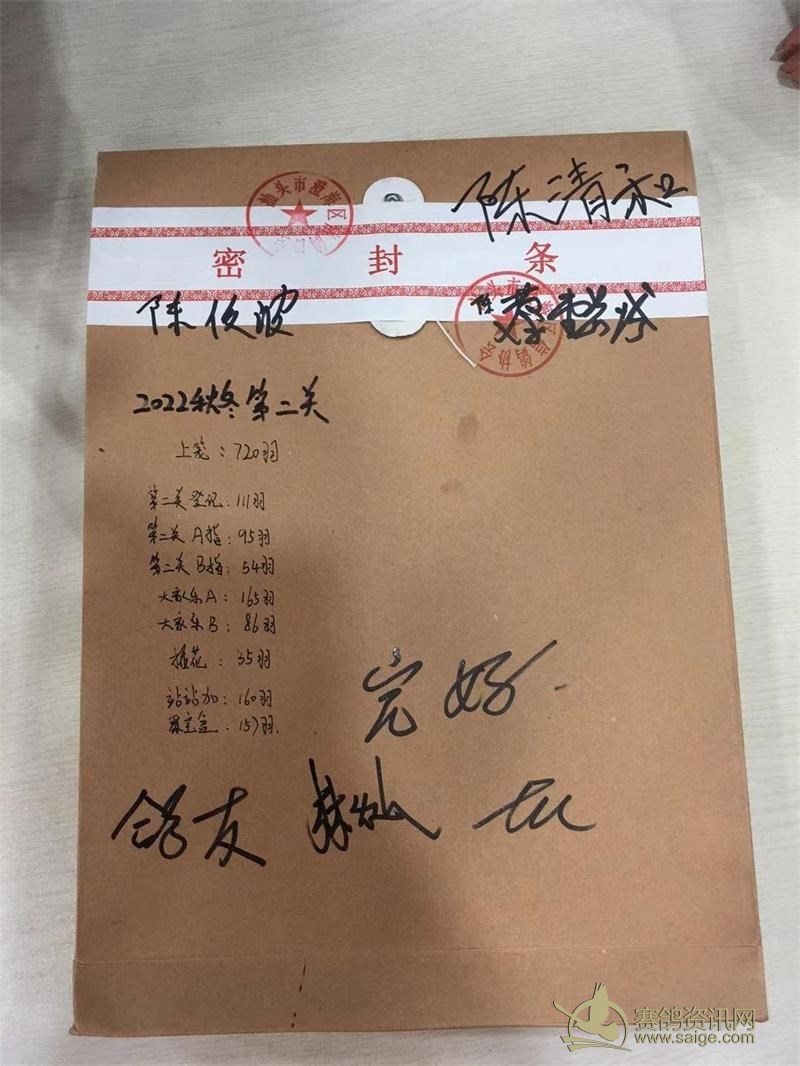 陈清和
汕头市澄海区
密封条
陈俊波
汕头市
陈
鸽协会
2022秋冬第二关
上笼：720羽
第二关登记：111羽
第二关A指：95羽
第二关B指：54羽
大家乐A：165羽
大家乐B：86羽
插花：35羽
站站加：160羽
聚宝盆：157羽
完好.
鸽友
赛鸽资讯网
www.saige.com